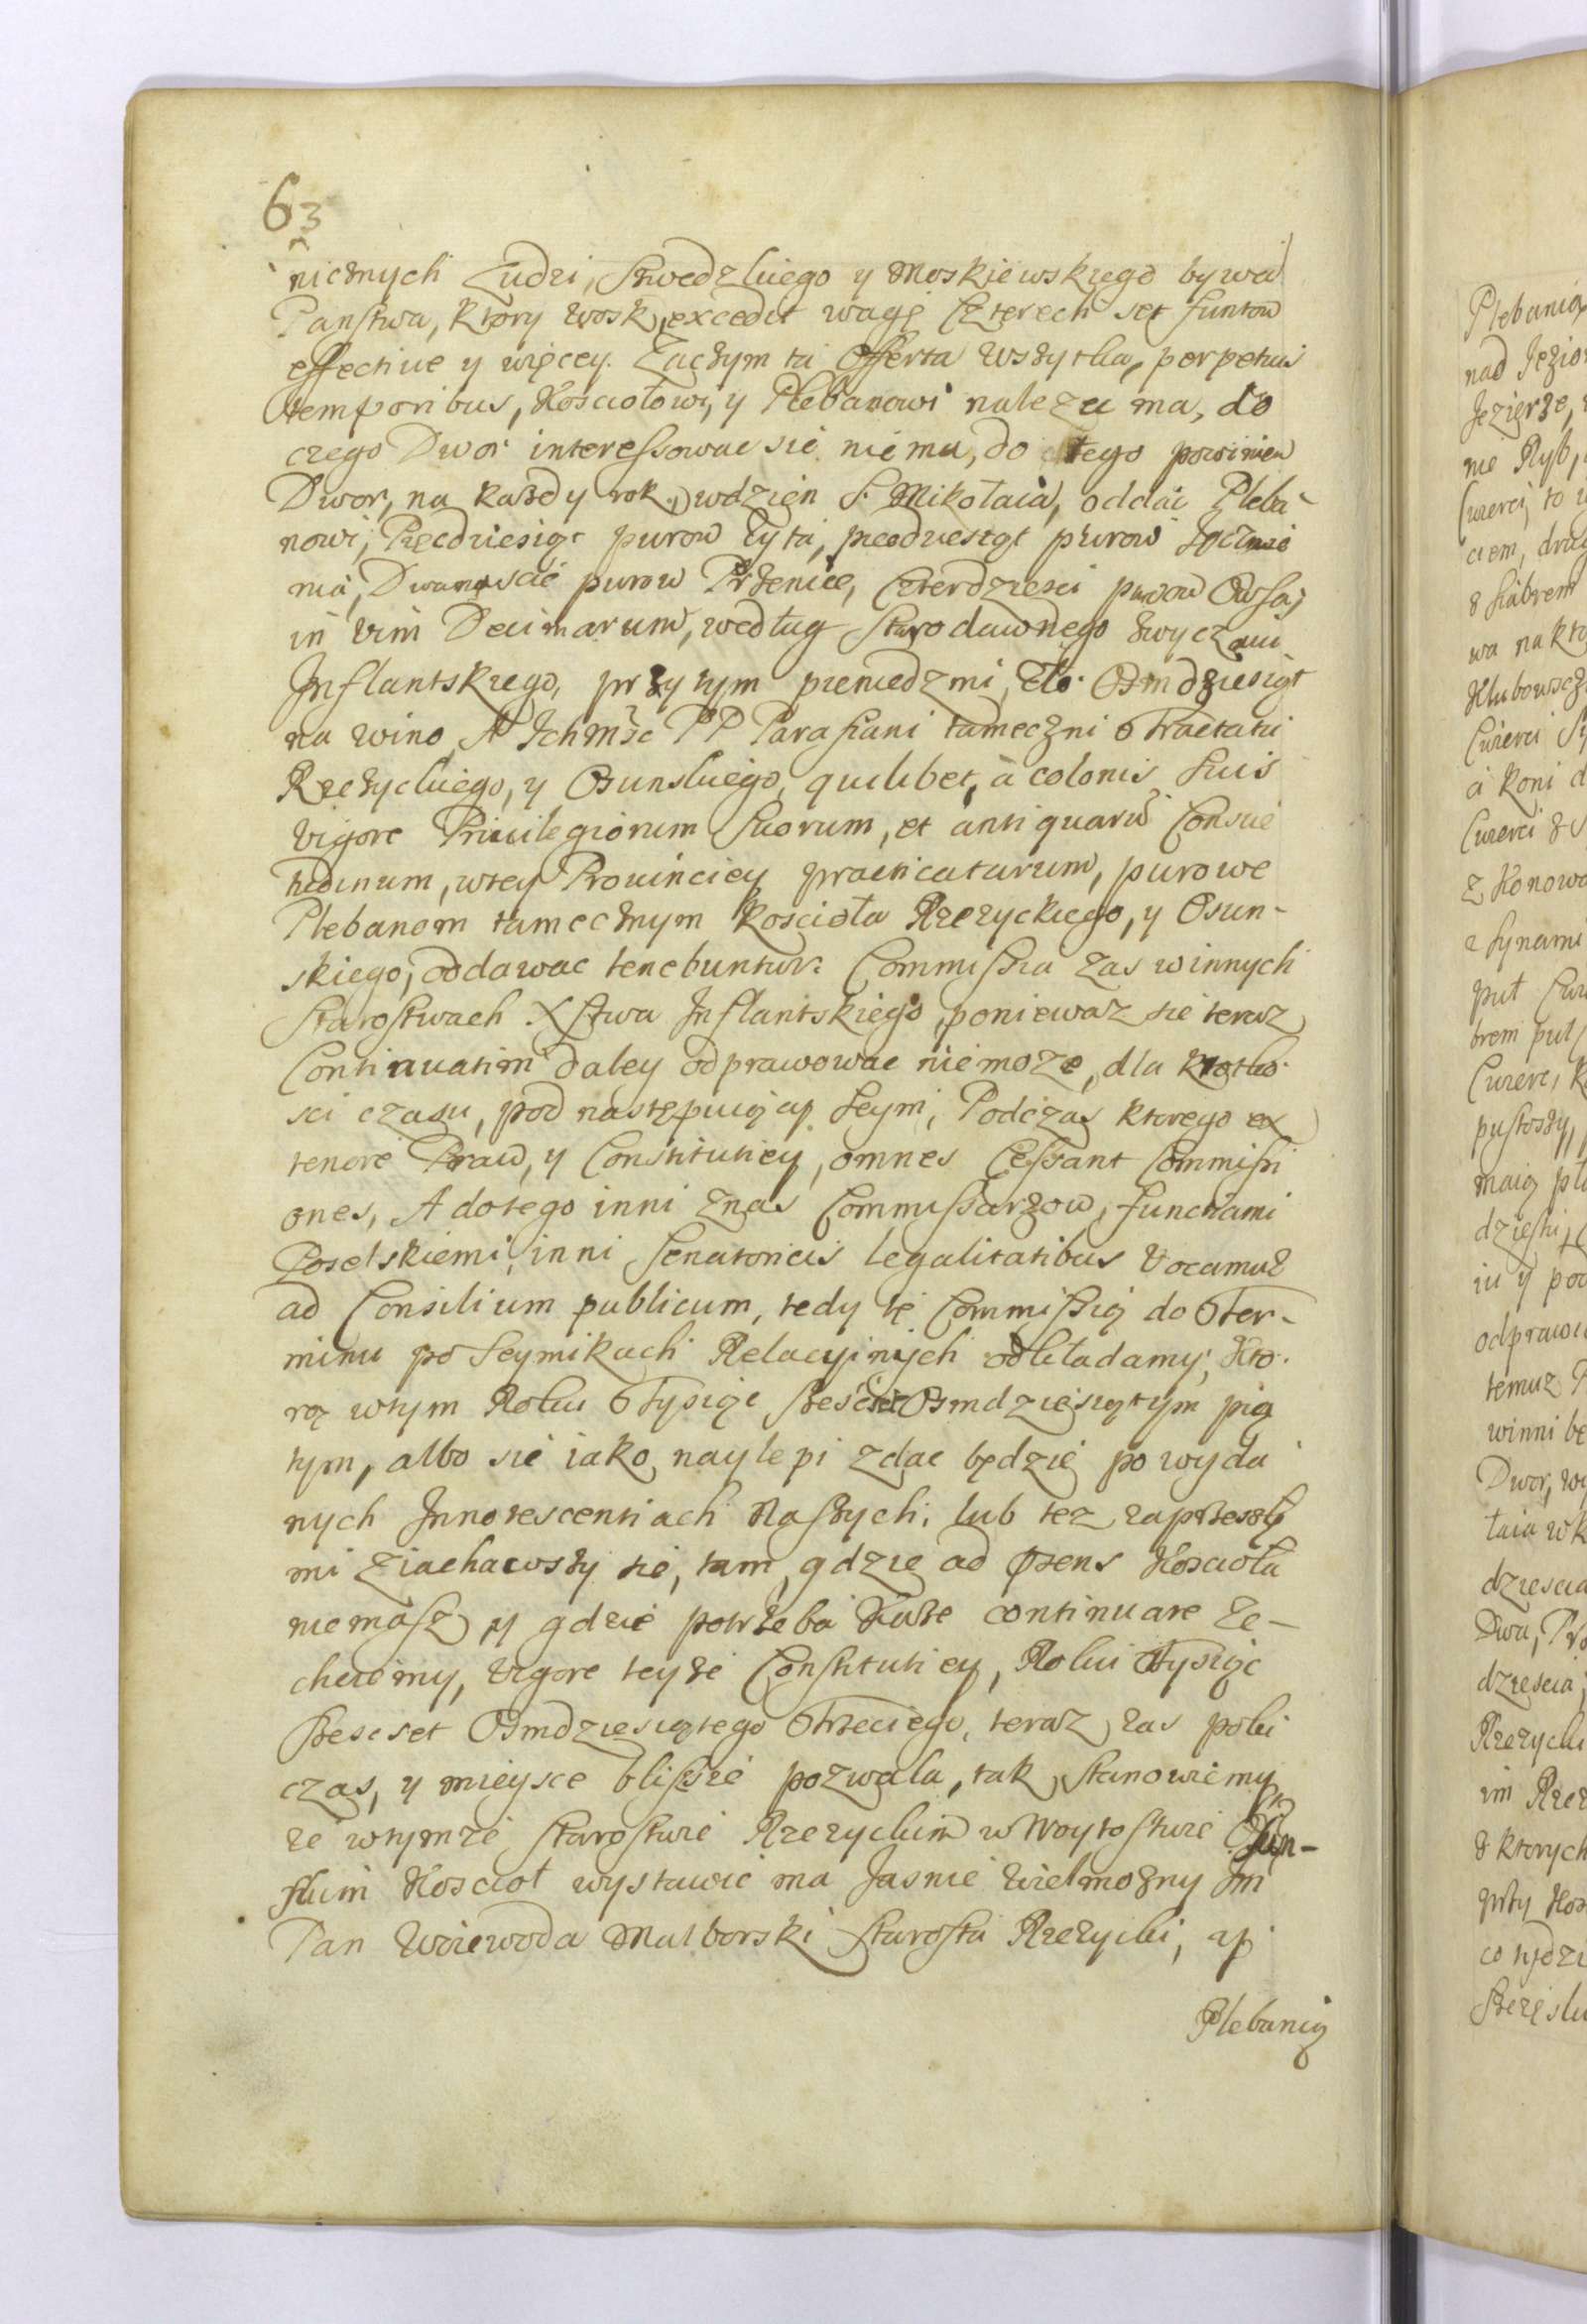 63
nicznych Ludzi, Szwedzkiego y Moskiewskiego bywa
Panstwa, ktory wosk, excedit wagę Czterech set funtow
effective y więcey. Zaczym ta Offerta wszytka, perpetuis
temporibus, Kosciołowi, y Plebanowi nalezec ma, do
czego Dwor interessowac sie niema, do tego powinien
Dwor, na kazdy rok, wdzien S. Mikołaia, oddac Pleba-
nowi, Pięcdziesiąt purow Zyta, piecdziesiąt purow Jęczmie
nia, Dwanascie purow Pszenice, Czterdziesci purow Owsa,
in vim Decimarum, według starodawnego zwyczaiu
Inflantskiego, przytym pieniedzmi, Zło. Osmdziesiąt
na wino, A Ichmsc PP Parafiani tameczni Tractatu
Rzezyckiego, y Osunskiego, quilibet, à colonis suis
vigore Priuilegiorum suorum, et antiquarũ Consue
tudinum, wtey Prouinciey practicatarum, purowe
Plebanom tamecznym Koscioła Rzezyckiego, y Osun-
skiego, oddawac tenebuntur. Commissia zas winnych
Starostwach Xstwa Inflantskiego, poniewaz sie teraz
Continuatim daley odprawowac niemoze, dla krotko-
sci czasu, pod następuiący Seym, Podczas ktorego ex
tenore Praw, y Constitutiey, omnes Cessant Commissi
ones, A dotego inni znas Commissarzow, functiami
Poselskiemi, inni Senatoriis legalitatibus vocamur
ad Consilium publicum, tedy tę Commissią do Ter-
minu po Seymikach Relacyinych odkładamy, Kto-
rą wtym Roku Tysiąc szescset Osmdziesiątym pią
tym, albo sie iako naylepi zdac będzie po wyda
nych Innotescentiach Naszych, lub tez zaprzeszły
mi Ziachawszy sie, tam, gdzie ad Koscioła
niemasz, y gdzie potrzeba continuare ze-
chcemy, vigore teyze Constitutiey, Roku Tysiąc
szescset Osmdziesiątego Trzeciego, teraz zas poki
czas, y mieysce blissze pozwala, tak, stanowiemy,
ze wtymze Starostwie Rzezyckim w Woytostwie Osun-
skim Koscioł wystawic ma Jasnie Wielmozny Im
Pan Woiewoda Malborski Starosta Rzezycki, y
Plebanią